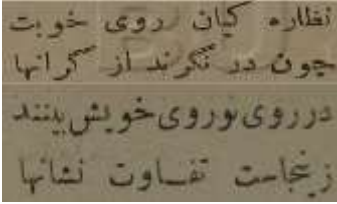 نظاره کیان روی خوبت
چون در نگرند از کرانها
در روی تو روی خویش بینند
زینجاست تفاوت نشانها